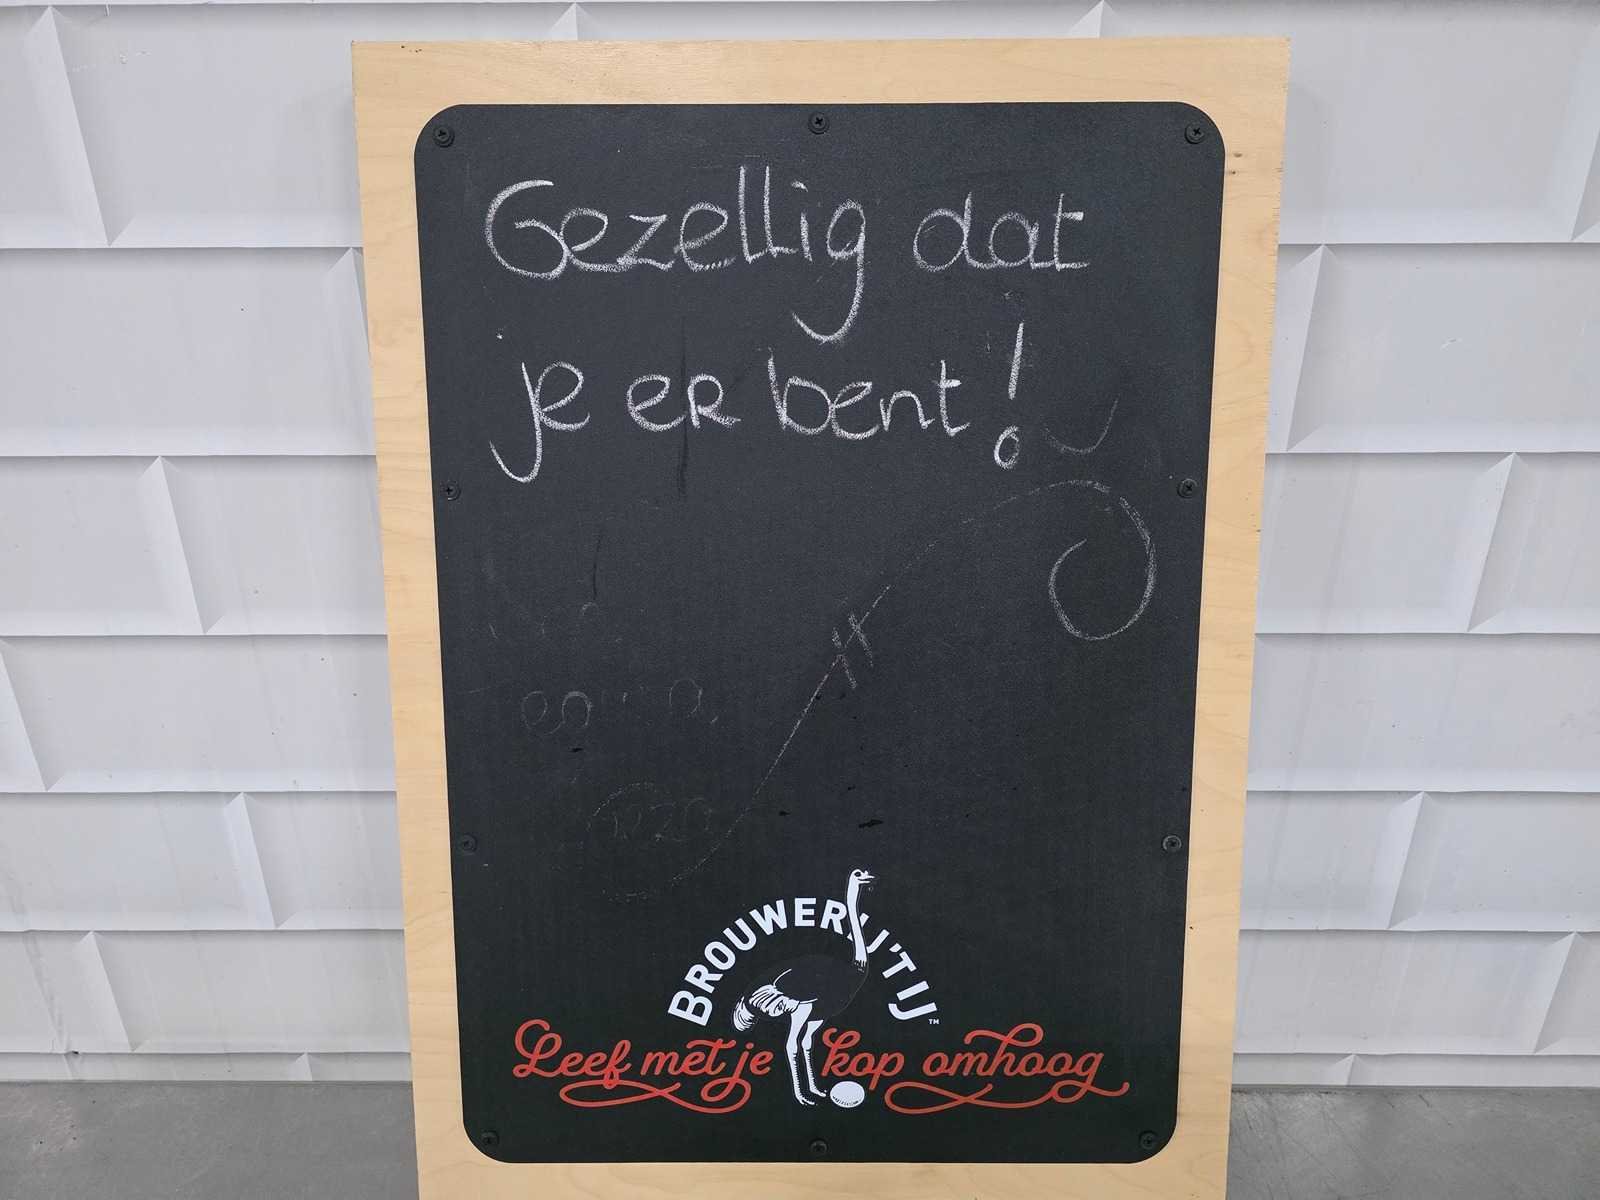 Gezellig dat
je er bent!
BROUWERIJ 'T IJ™
Leef met je kop omhoog